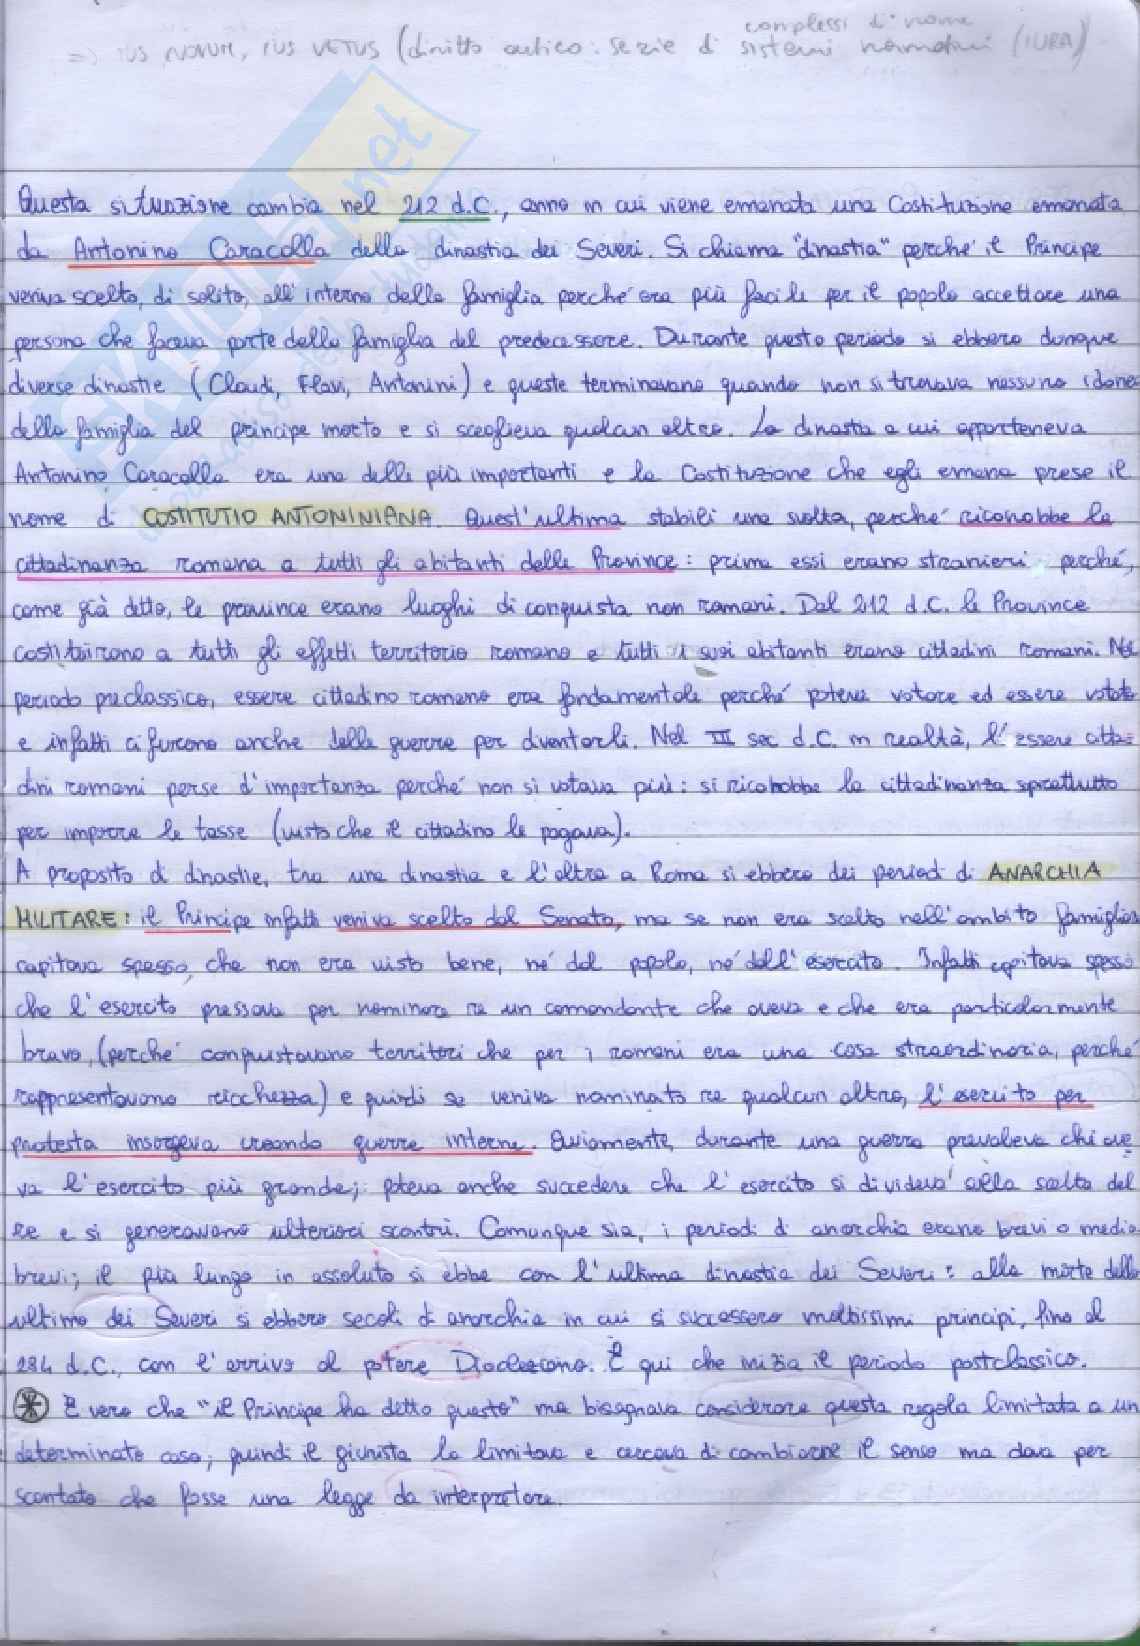 complessi di norme
=> IUS NOVUM, IUS VETUS (diritto antico: serie di sistemi normativi (IURA)
SKUOLA.net
Questa situazione cambia nel 212 d.C., anno in cui viene emanata una Costituzione emanata
da Antonino Caracalla della dinastia dei Severi. Si chiama "dinastia" perché il Principe
veniva scelto, di solito, all'interno della famiglia perché era più facile per il popolo accettare una
persona che faceva parte della famiglia del predecessore. Durante questo periodo si ebbero dunque
diverse dinastie (Claudi, Flavi, Antonini) e queste terminavano quando non si trovava nessuno idoneo
della famiglia del principe morto e si sceglieva qualcun altro. La dinastia a cui apparteneva
Antonino Caracalla era una delle più importanti e la Costituzione che egli emana prese il
nome di COSTITUTIO ANTONINIANA. Quest'ultima stabilì una svolta, perché riconobbe la
cittadinanza romana a tutti gli abitanti delle Province: prima essi erano stranieri perché,
come già detto, le province erano luoghi di conquista non romani. Dal 212 d.C. le Province
costituirono a tutti gli effetti territorio romano e tutti i suoi abitanti erano cittadini romani. Nel
periodo preclassico, essere cittadino romano era fondamentale perché poteva votare ed essere votato
e infatti ci furono anche delle guerre per diventarli. Nel III sec d.C. in realtà, l'essere citta-
dini romani perse d'importanza perché non si votava più: si riconobbe la cittadinanza soprattutto
per imporre le tasse (visto che il cittadino le pagava).
A proposito di dinastie, tra una dinastia e l'altra a Roma si ebbero dei periodi di ANARCHIA
MILITARE: il Principe infatti veniva scelto dal Senato, ma se non era scelto nell'ambito famigliare
capitava spesso, che non era visto bene, né dal popolo, né dall'esercito. Infatti capitava spesso
che l'esercito pressava per nominare re un comandante che aveva e che era particolarmente
bravo, (perché conquistavano territori che per i romani era una cosa straordinaria, perché
rappresentavano ricchezza) e quindi se veniva nominato re qualcun altro, l'esercito per
protesta insorgeva creando guerre interne. Ovviamente, durante una guerra prevaleva chi ave
va l'esercito più grande; poteva anche succedere che l'esercito si divideva sulla scelta del
re e si generavano ulteriori scontri. Comunque sia, i periodi di anarchia erano brevi o medio
brevi; il più lungo in assoluto si ebbe con l'ultima dinastia dei Severi: alla morte dello
ultimo dei Severi si ebbero secoli di anarchia in cui si successero moltissimi principi, fino al
284 d.C., con l'arrivo al potere Diocleziano. È qui che inizia il periodo postclassico.
* È vero che "il Principe ha detto questo" ma bisognava considerare questa regola limitata a un
determinato caso; quindi il giurista la limitava e cercava di cambiarne il senso ma dava per
scontato che fosse una legge da interpretare.